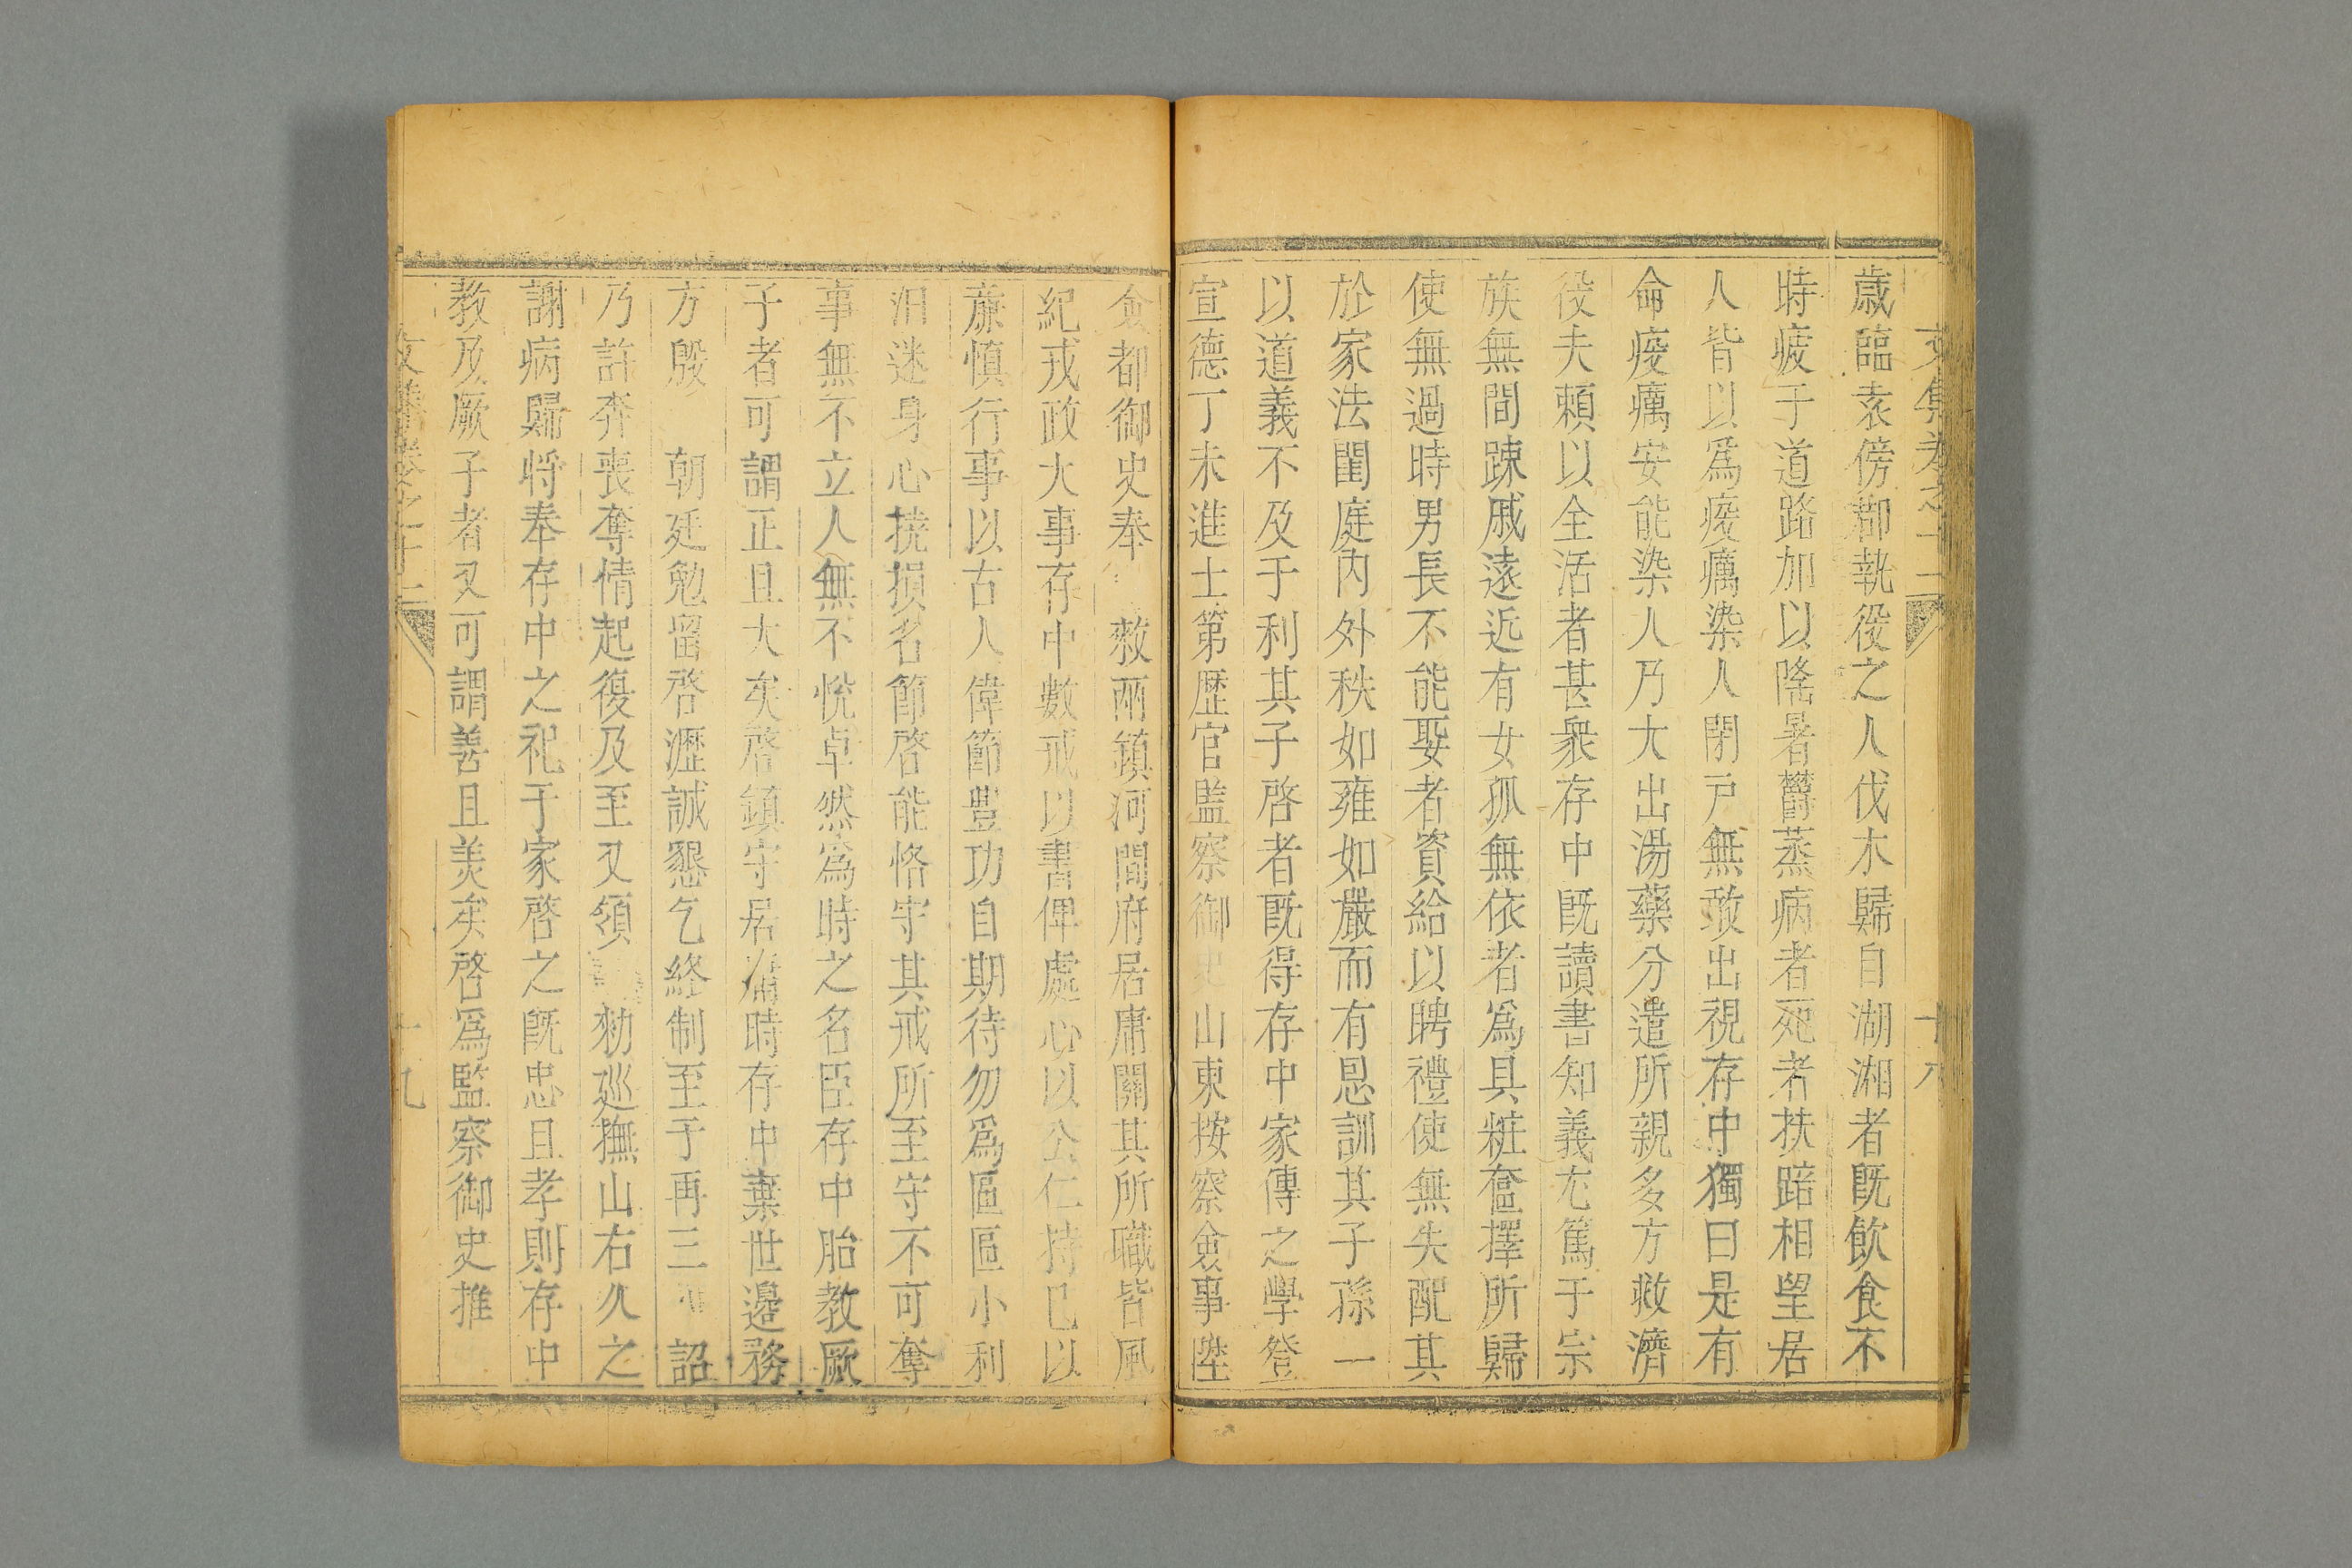 文集卷之十二 十八
歳臨袁傍郡執役之人伐木歸自湖湘者既飲食不
時疲于道路加以陰暑欝蒸病者死者扶踣相望居
人皆以爲疫癘染人閉戸無敢出視存中獨曰是有
命疫癘安能染人乃大出湯藥分遣所親多方救濟
役夫頼以全活者甚衆存中既讀書知義尤篤于宗
族無間踈戚遠近有女孤無依者爲具粧奩擇所歸
使無過時男長不能娶者資給以聘禮使無失配其
於家法閨庭内外秩如雍如嚴而有恩訓其子孫一
以道義不及于利其子啓者既得存中家傳之學登
宣德丁未進士第歴官監察御史山東按察僉事陞
僉都御史奉 敕兩鎮河間府居庸關其所職皆風
紀戎政大事存中數戒以書俾處心以公仁持己以
亷慎行事以古人偉節豊功自期待勿爲區區小利
汨迷身心撓損名節啓能恪守其戒所至守不可奪
事無不立人無不悅卓然爲時之名臣存中胎教厥
子者可謂正且大矣啓鎮守居庸時存中棄世邉務
方殷 朝廷勉留啓瀝誠懇乞終制至于再三 詔
乃許奔喪奪情起復及至又領 勑廵撫山右久之
謝病歸將奉存中之祀于家啓之既忠且孝則存中
教及厥子者又可謂善且美矣啓爲監察御史推
文集卷之十二 十九